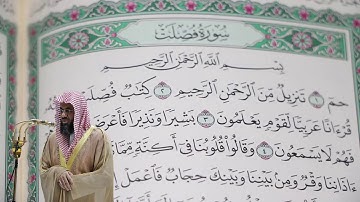 سُورَةُ فُصِّلَتْ
بِسْمِ اللَّهِ الرَّحْمَٰنِ الرَّحِيمِ
حمٓ ١ تَنزِيلٌ مِّنَ الرَّحْمَٰنِ الرَّحِيمِ ٢ كِتَابٌ فُصِّلَتْ
قُرْءَانًا عَرَبِيًّا لِّقَوْمٍ يَعْلَمُونَ ٣ بَشِيرًا وَنَذِيرًا فَأَعْرَضَ
فَهُمْ لَا يَسْمَعُونَ ٤ وَقَالُوا قُلُوبُنَا فِي أَكِنَّةٍ مِّمَّا
ءَاذَانِنَا وَقْرٌ وَمِنْ بَيْنِنَا وَبَيْنِكَ حِجَابٌ فَاعْمَلْ